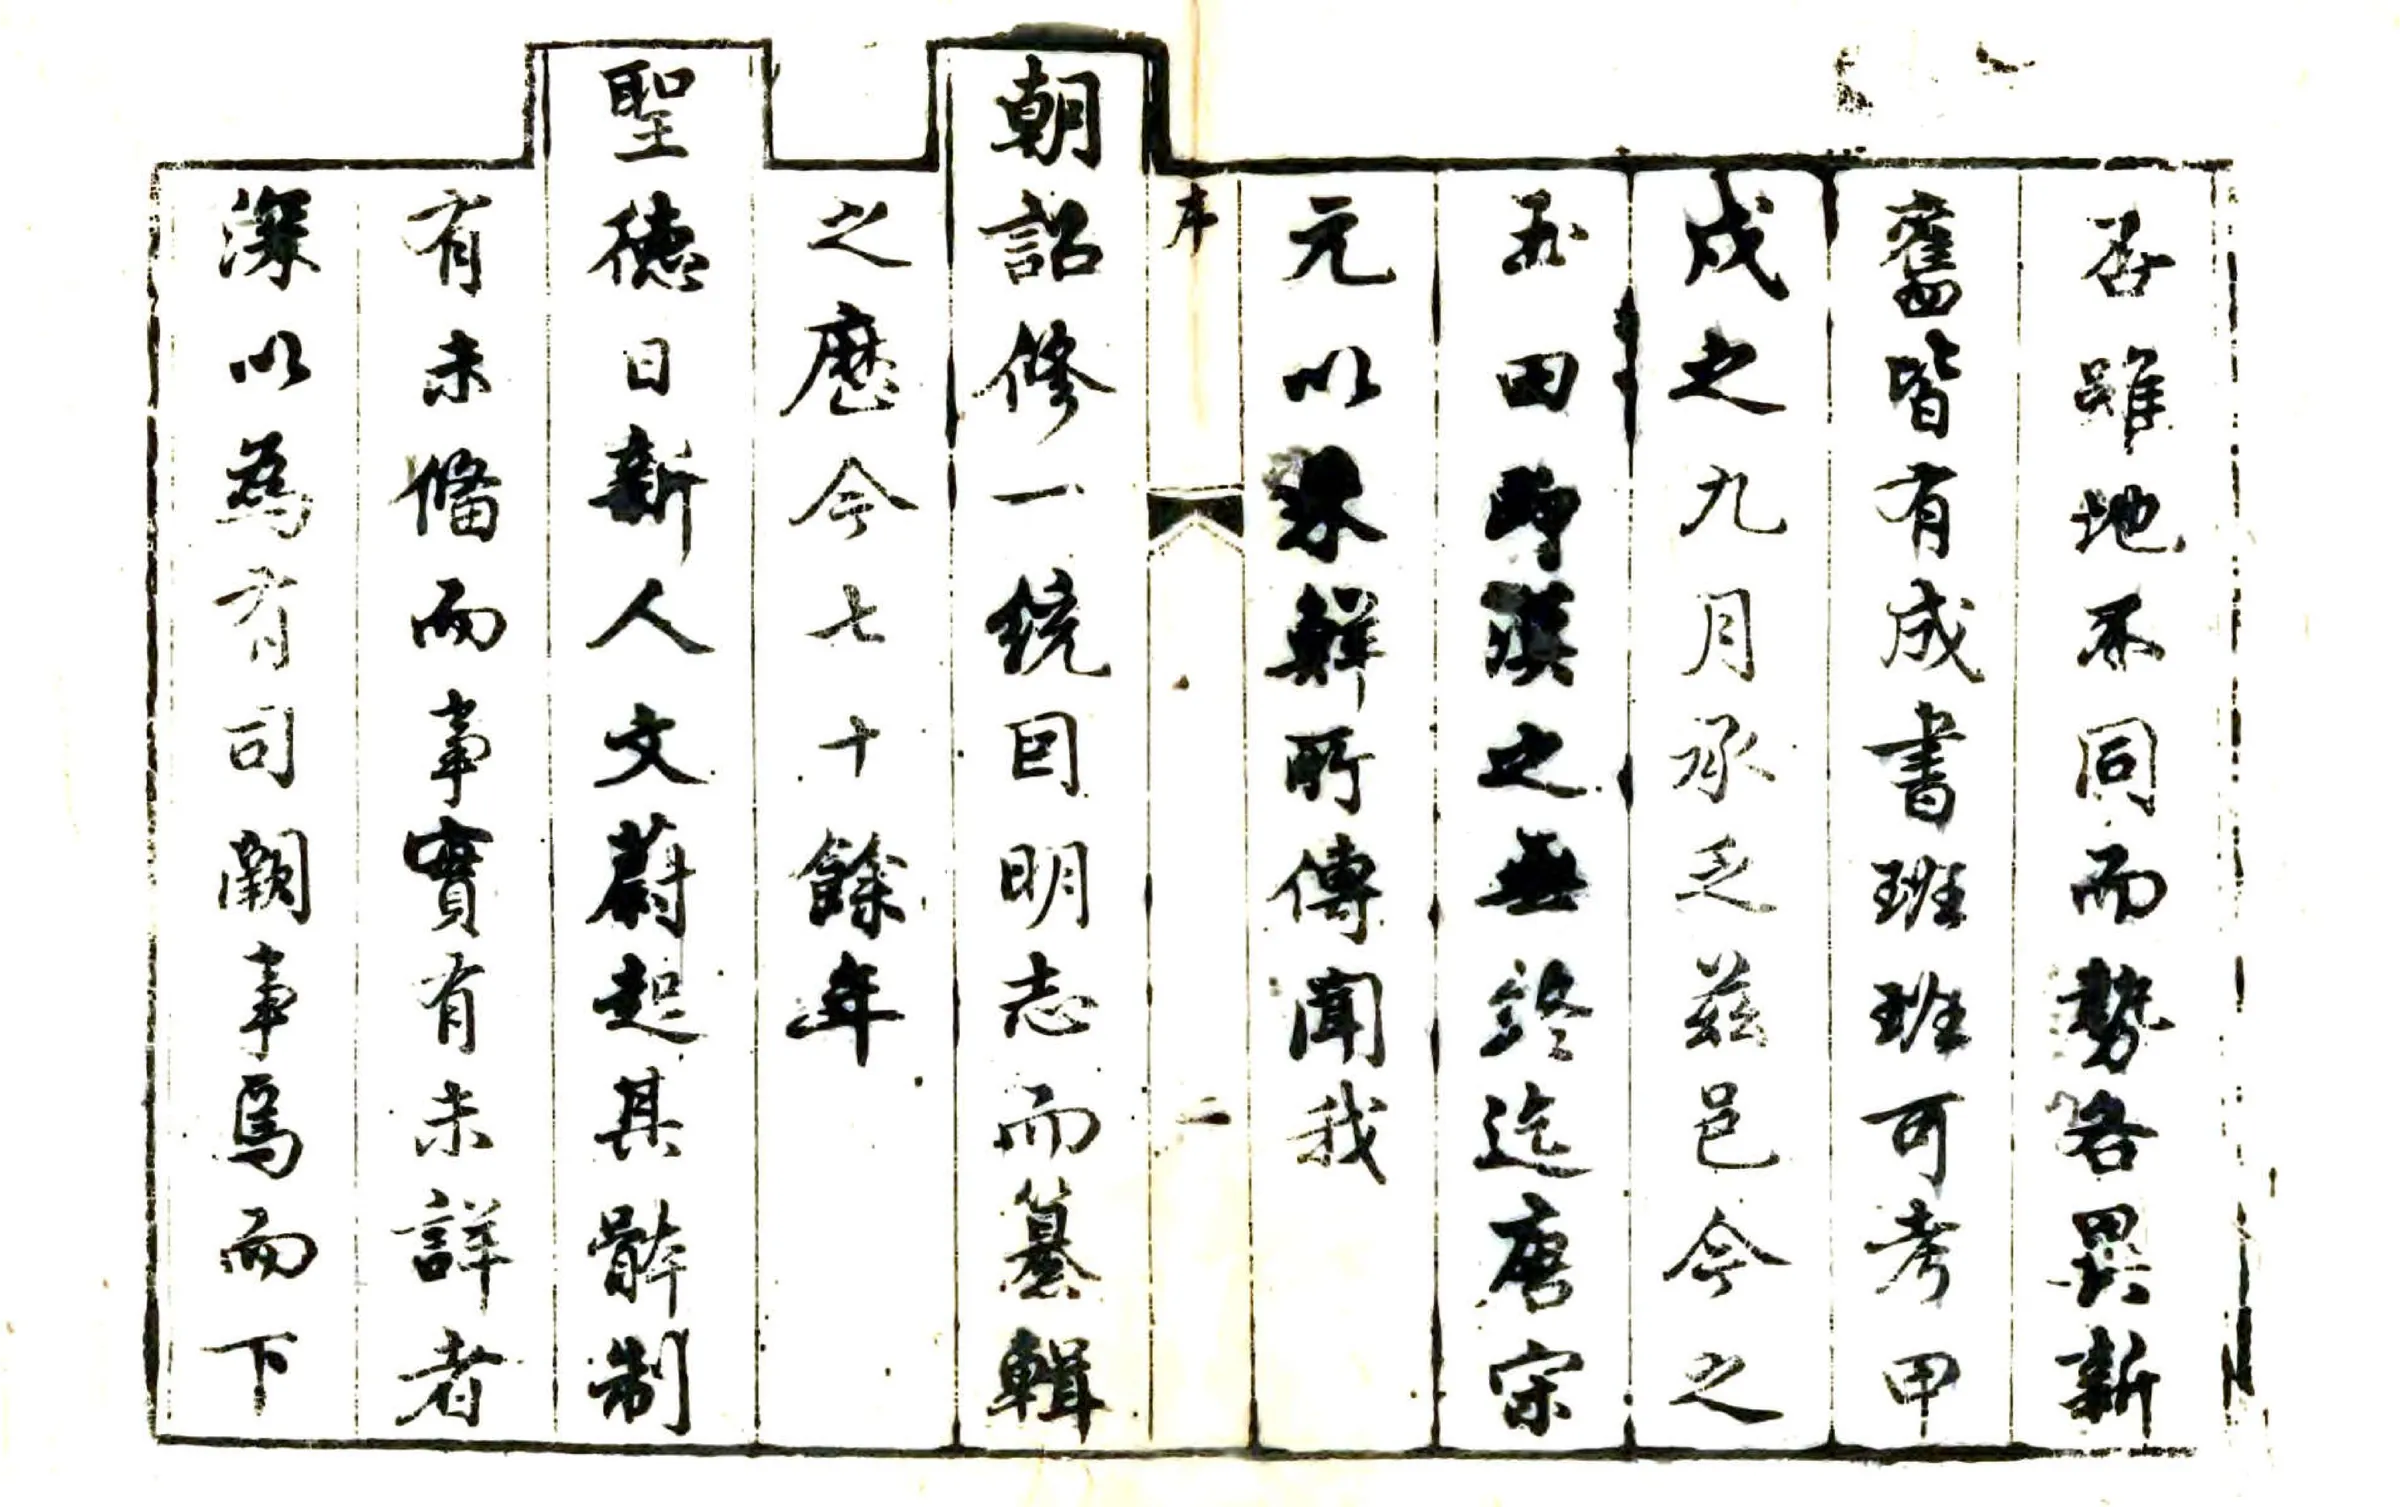 否雖地不同而勢各異新
舊皆有成書班班可考甲
戌之九月承乏兹邑今之
玉田即漢之無終迄唐宋
元以來鮮所傳聞我
序
二
朝詔修一統因明志而纂輯
之歷今七十餘年
聖德日新人文蔚起其骵制
有未備而事實有未詳者
深以為有司闕事焉而下